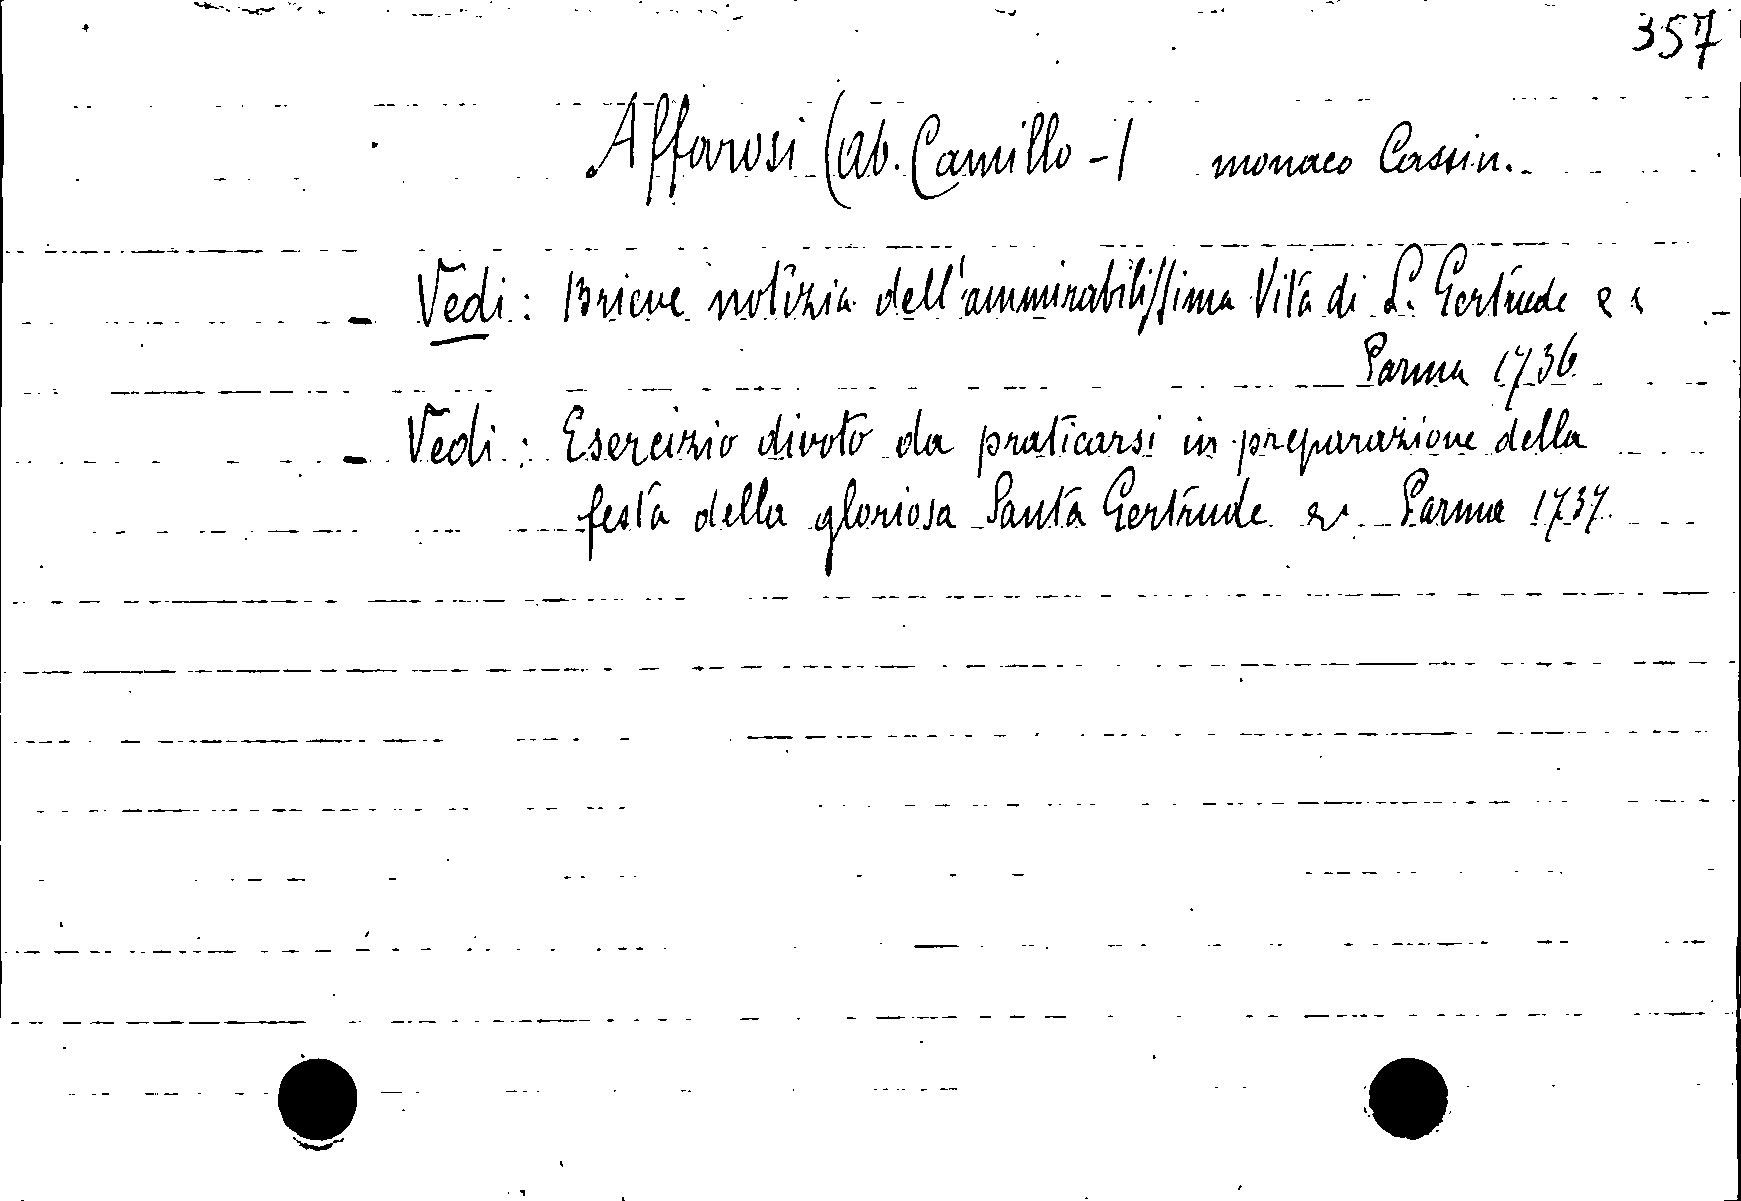 357
Affarosi (ab. Camillo -) monaco Cassin.
- Vedi: Brieve notizia dell'ammirabilissima Vita di S. Gertrude
Parma 1736
- Vedi: Esercizio divoto da praticarsi in preparazione della
festa della gloriosa Santa Gertrude & Parma 1737.